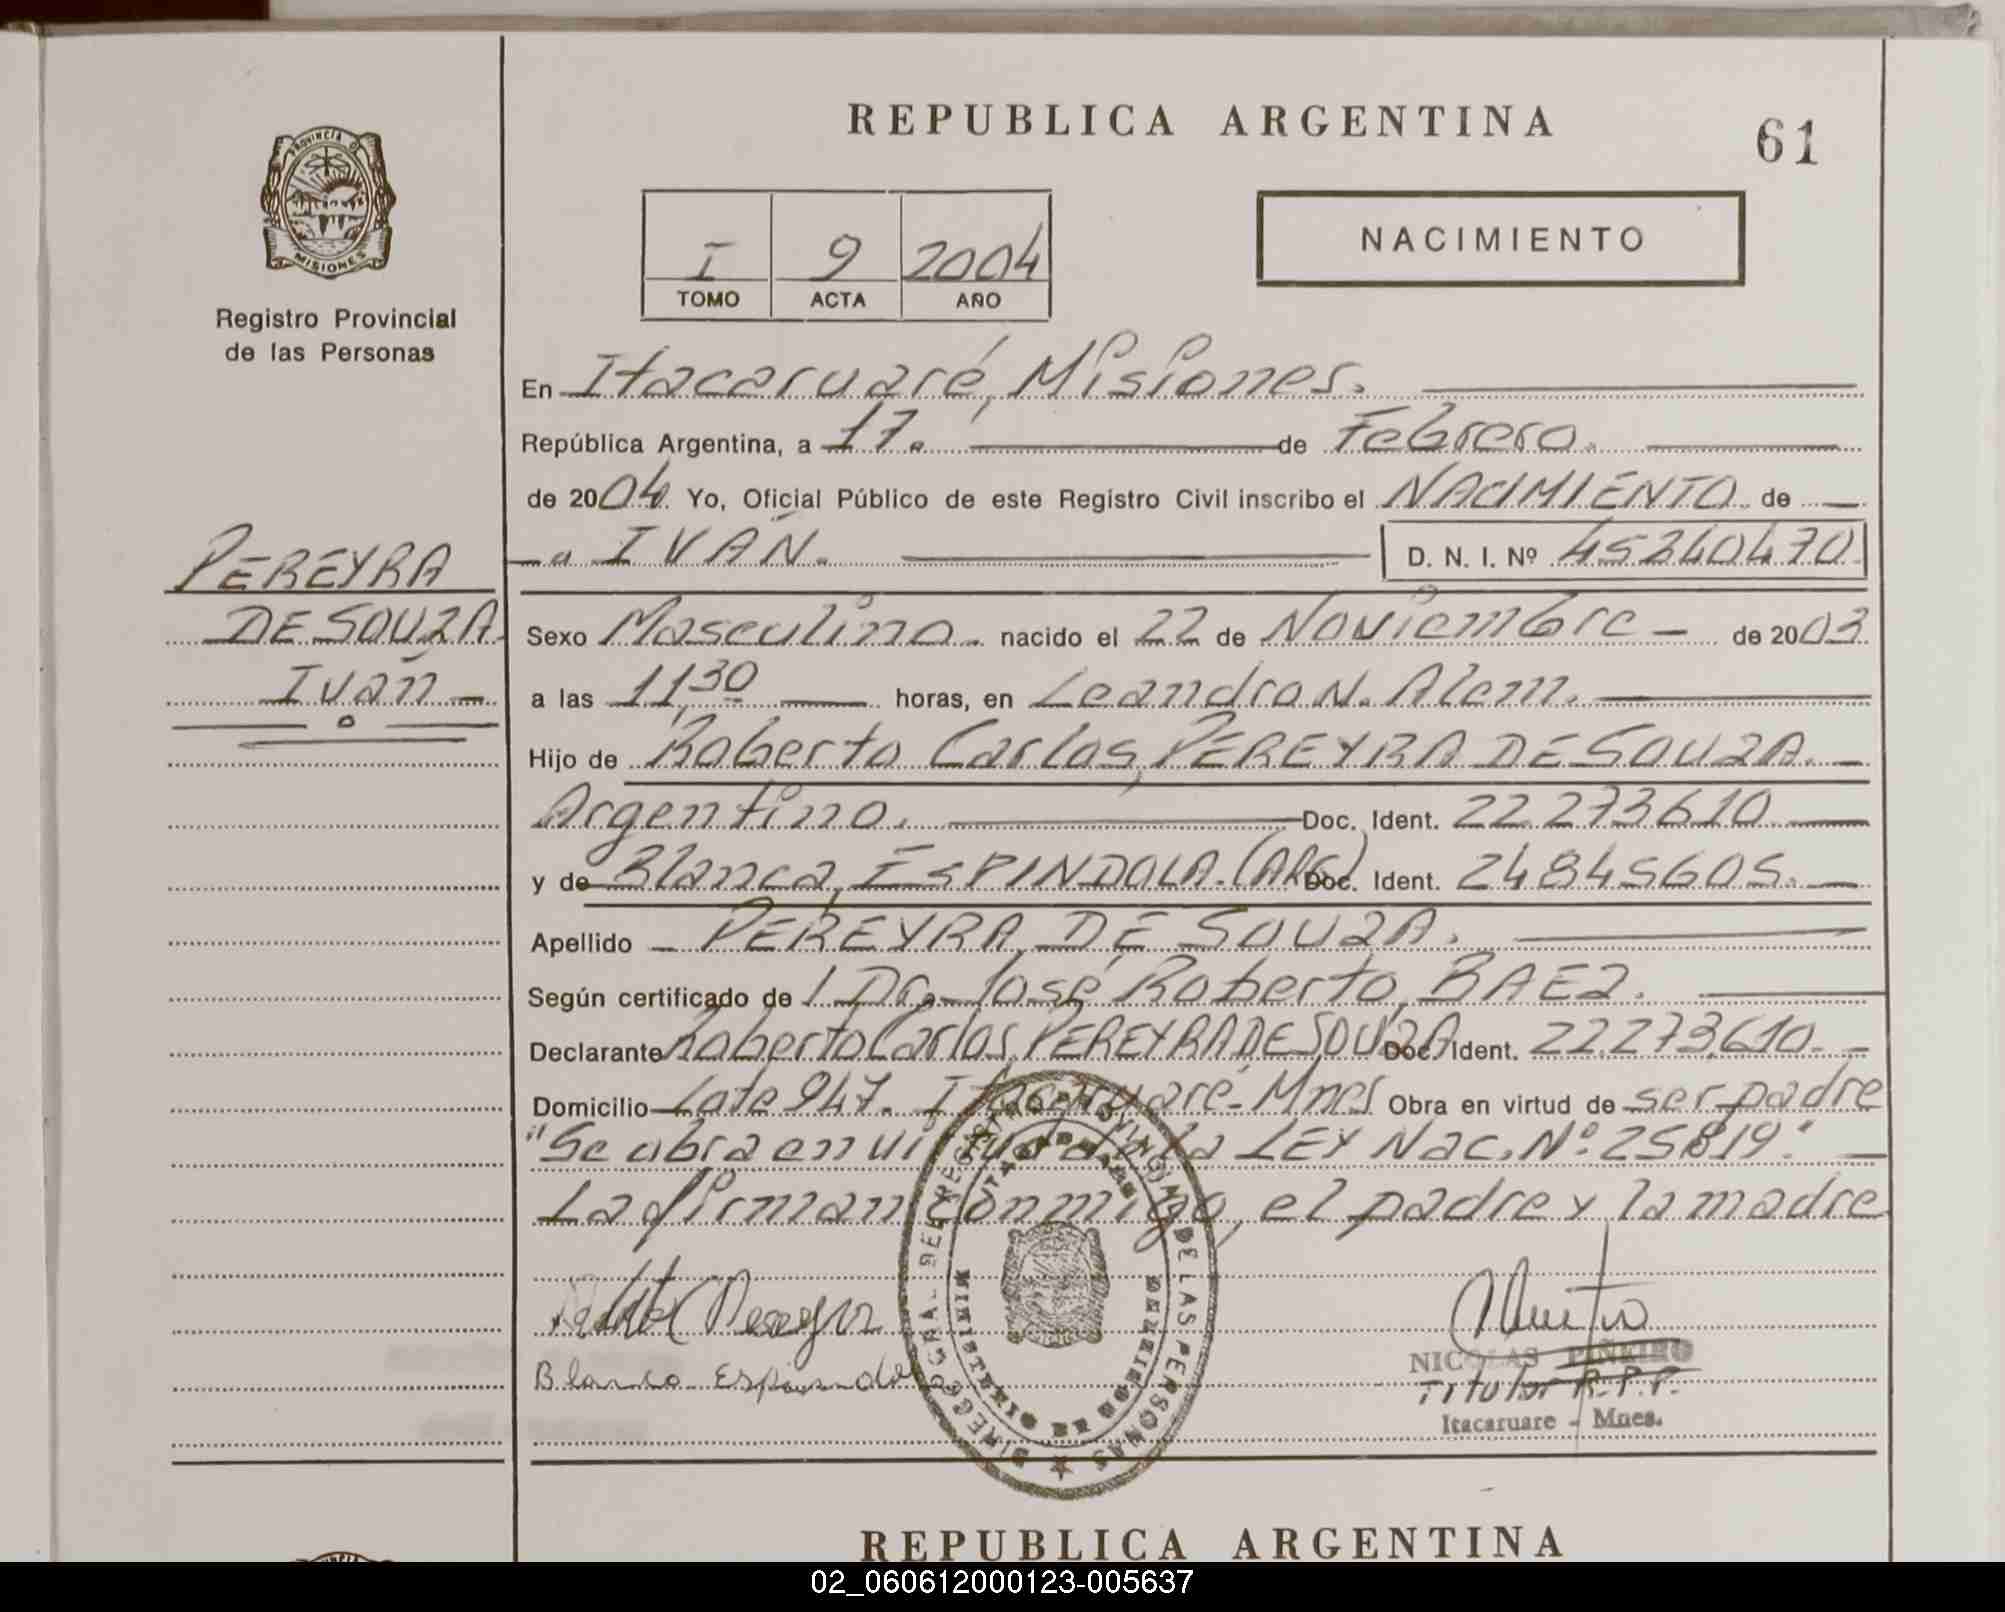 REPUBLICA ARGENTINA
61
PROVINCIA DE
MISIONES
Registro Provincial
de las Personas
I 9 2004
TOMO ACTA AÑO
NACIMIENTO
En Itacaruaré, Misiones.
República Argentina, a 17. de Febrero.
de 2004. Yo, Oficial Público de este Registro Civil inscribo el NACIMIENTO de
a IVÁN. D. N. I. Nº 45240470.
PEREYRA
DE SOUZA
Iván
Sexo Masculino. nacido el 22 de Noviembre de 2003
a las 11,30 horas, en Leandro N. Alem.
Hijo de Roberto Carlos, PEREYRA DE SOUZA.
Argentino. Doc. Ident. 22.273610
y de Blanca, ESPINDOLA. (ARG) Doc. Ident. 24845605.
Apellido PEREYRA DE SOUZA.
Según certificado de l Dr. José Roberto, BAEZ.
Declarante Roberto Carlos, PEREYRA DE SOUZA Doc. Ident. 22.273.610.
Domicilio Lote 947. Itacaruaré-Mnes Obra en virtud de ser padre
"Se obra en virtud de la LEY Nac. Nº 25819."
La firman conmigo, el padre y la madre
Blanca Espindola
NICOLAS PIÑEIRO
Titular R.P.P.
Itacaruare - Mnes.
DIRECC. GRAL. DEL REGISTRO PROVINCIAL DE LAS PERSONAS
MINISTERIO DE GOBIERNO
REPUBLICA ARGENTINA
02_060612000123-005637